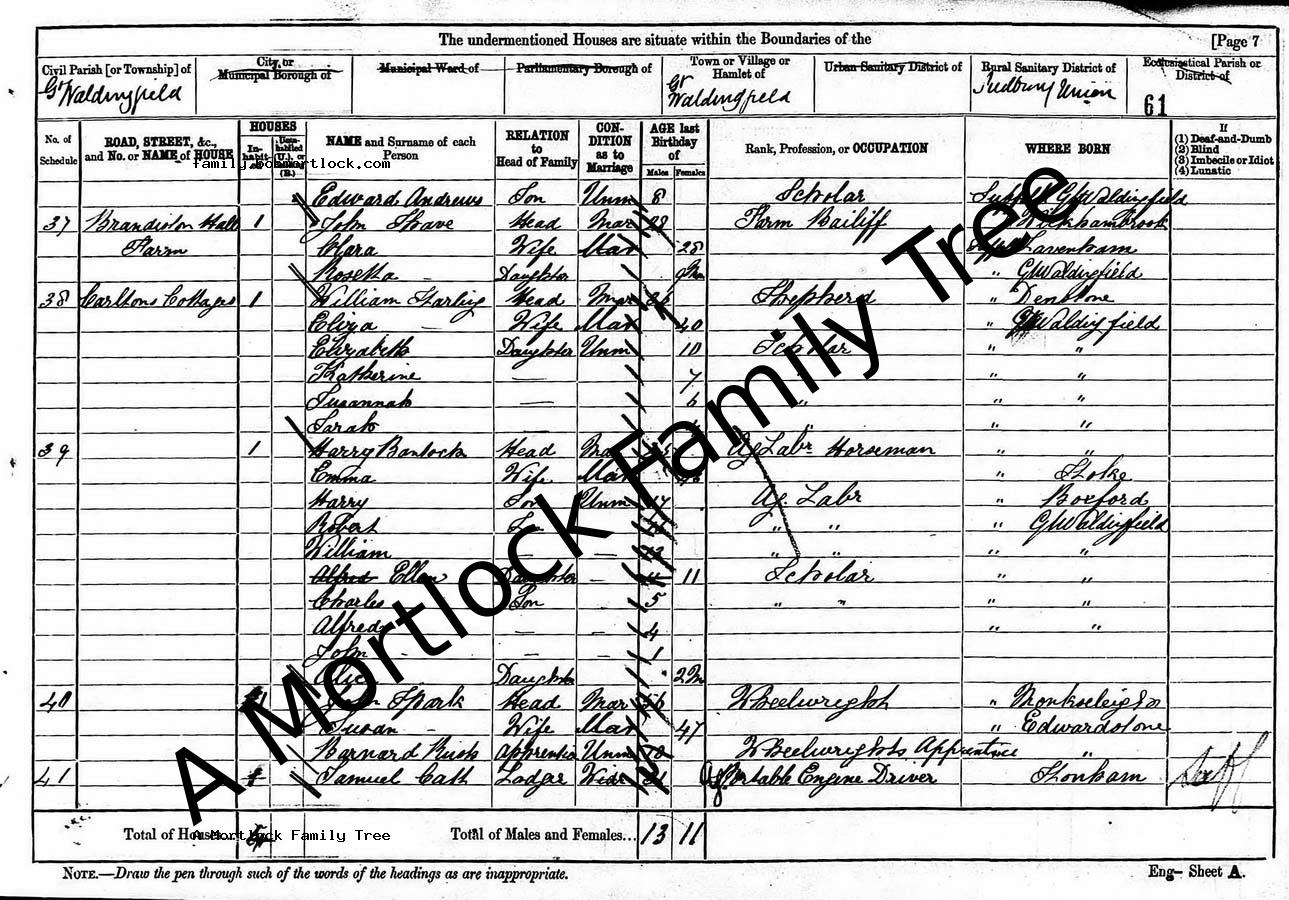 The undermentioned Houses are situate within the Boundaries of the [Page 7
Civil Parish [or Township] of City or Municipal Borough of Municipal Ward of Parliamentary Borough of Town or Village or Hamlet of Urban Sanitary District of Rural Sanitary District of Ecclesiastical Parish or District of
Gt Waldingfield Gt Waldingfield Sudbury Union 61
No. of Schedule ROAD, STREET, &c., and No. or NAME of HOUSE HOUSES NAME and Surname of each Person RELATION to Head of Family CONDITION as to Marriage AGE last Birthday of Males Females Rank, Profession, or OCCUPATION WHERE BORN If (1) Deaf-and-Dumb (2) Blind (3) Imbecile or Idiot (4) Lunatic
Edward Andrews Son Unm 8 Scholar Suffolk Gt Waldingfield
37 Brandiston Hall 1 John Head Mar Farm Bailiff Wickhambrook
Farm Clara Wife Mar 28 Lavenham
Rosetta Daughter 9 Mo " Gt Waldingfield
38 Carltons Cottages 1 William Starling Head Mar Shepherd " Denstone
Eliza — Wife Mar 40 " Gt Waldingfield
Elizabeth Daughter Unm 10 Scholar " "
Katherine — 7 " "
Susannah — 6 " " "
Sarah " "
39 1 Harry Head Mar Ag Labr Horseman " "
Emma Wife Mar " Stoke
Harry Son Unm 17 Ag. Labr " Boxford
Robert Son " " " Gt Waldingfield
William — — " " " "
Alfred Ellen Daughter — 11 Scholar " "
Charles Son 5 " " " "
Alfred — — 4 " "
John - — — 1
Alice Daughter 2 Mo
40 1 Spark Head Mar 56 Wheelwright " Monkseleigh
Susan Wife Mar 47 " Edwardstone
Barnard Rush apprentice Unm Wheelwrights Apprentice "
41 Samuel Catt Lodger Widr Ag. Portable Engine Driver Stonham
Total of Houses Total of Males and Females... 13 11
NOTE.—Draw the pen through such of the words of the headings as are inappropriate.
Eng- Sheet A.
family.bobmortlock.com
A Mortlock Family Tree
A Mortlock Family Tree